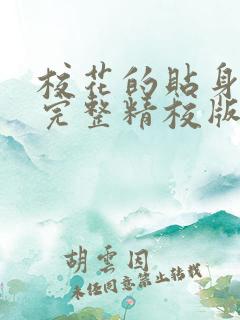 校花的贴身
完整精校版
胡云因
未经同意禁止转载